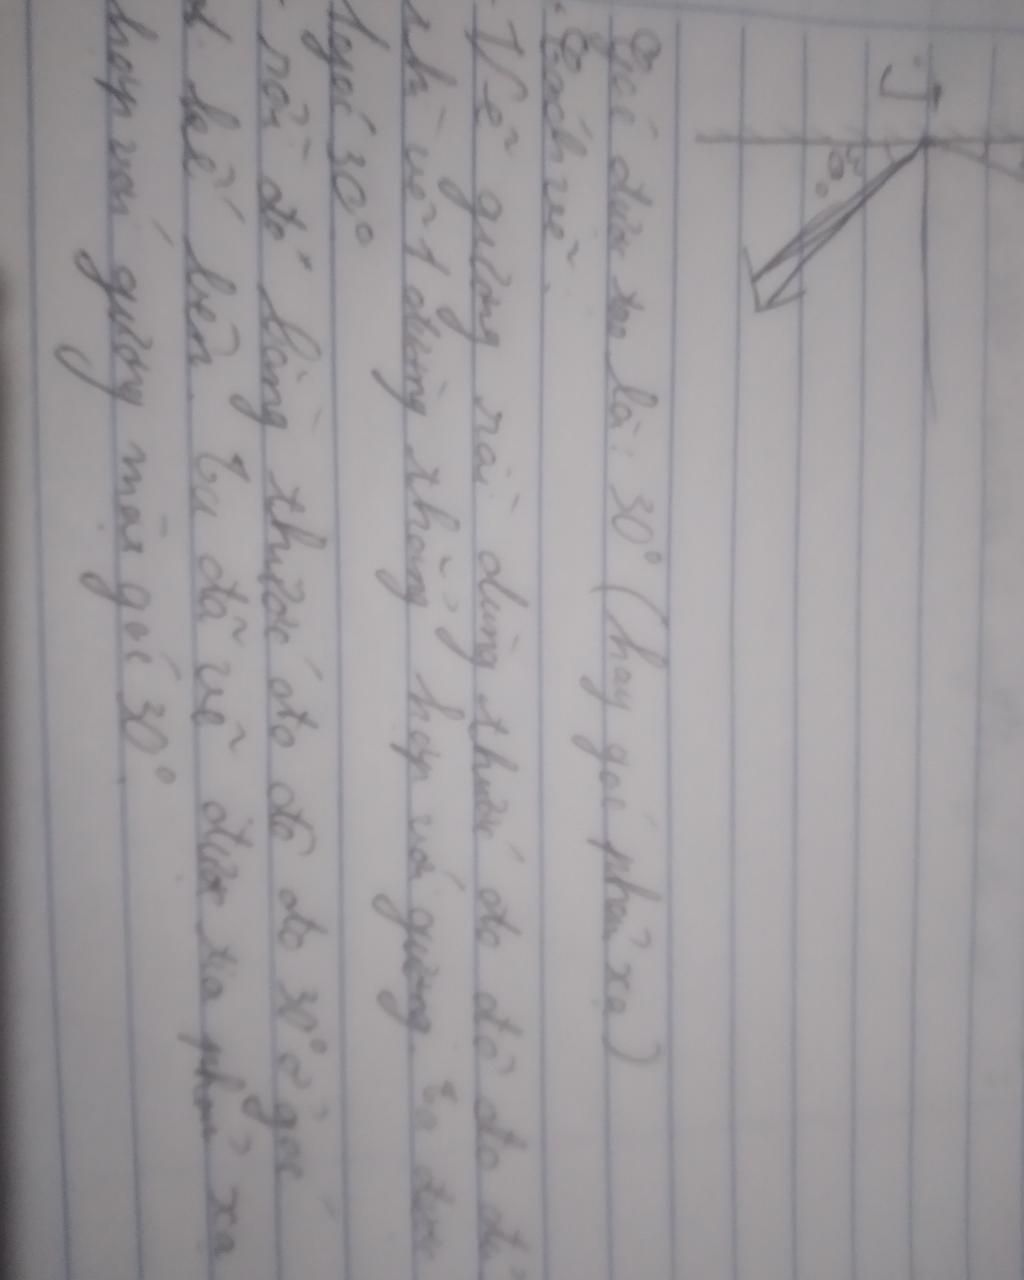 J
30°
Góc được tạo là: 30° (hay góc phản xạ)
. Cách vẽ.
- Vẽ gương rồi dùng thước đo độ đo
vẽ 1 đường thẳng hợp với gương. Ta được
1 góc 30°
- rồi đó bằng thước đo độ đo 30° ở góc
kế bên. Ta đã vẽ được tia phản xạ
hợp với gương một góc 30°.